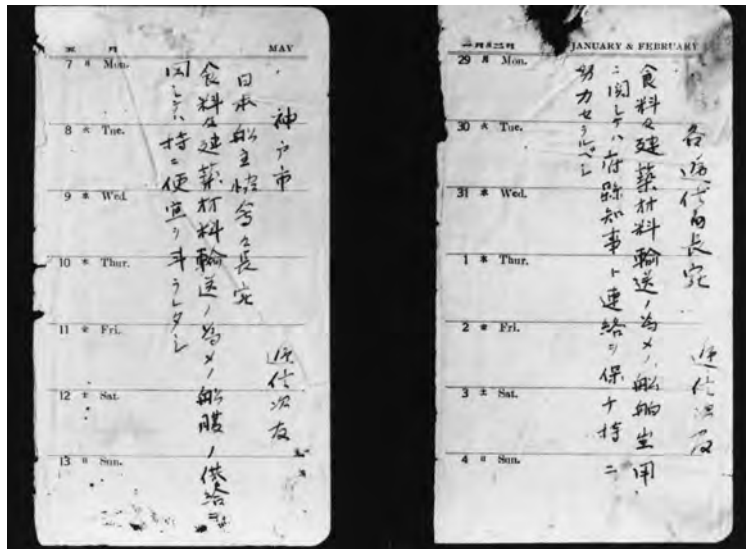 五月 MAY
7 月 Mon.
8 火 Tue.
9 水 Wed.
10 木 Thur.
11 金 Fri.
12 土 Sat.
13 日 Sun.
神戸市
逓信次官
日本船主協会々長宛
食料及建築材料輸送ノ為メノ船腹ノ供給ニ
関シテハ特ニ便宜ヲ斗ラレタシ
一月及二月 JANUARY & FEBRUARY
29 月 Mon.
30 火 Tue.
31 水 Wed.
1 木 Thur.
2 金 Fri.
3 土 Sat.
4 日 Sun.
各逓信局長宛
逓信次官
食料及建築材料輸送ノ為メノ船舶
ニ関シテハ府縣知事ト連絡ヲ保チ特ニ
努力セラルベシ